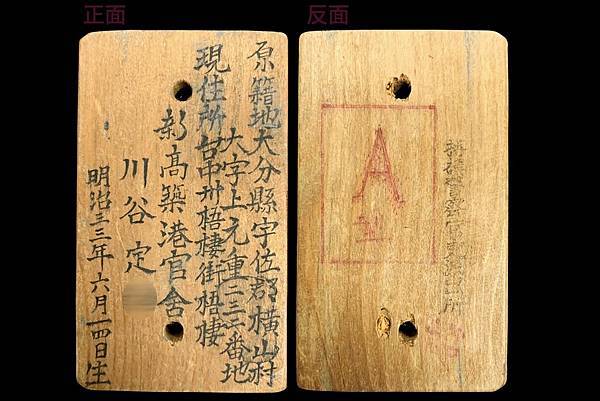 正面
原籍地大分縣宇佐郡橫山村
大字上元重二三二番地
現住所台中州梧棲街梧棲
新高築港官舍
川谷定
明治三三年六月一四日生
反面
A
型